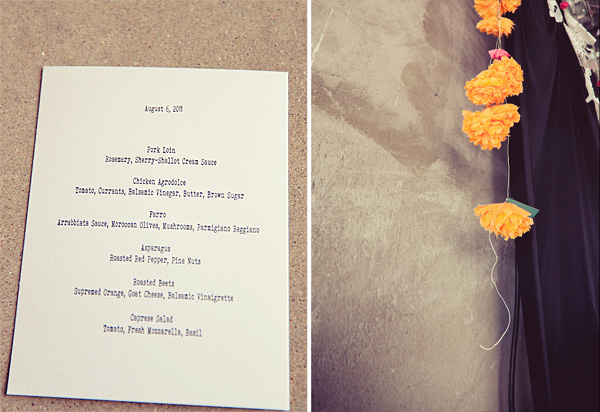 August 6, 2011
Pork Loin
Rosemary, Sherry-Shallot Cream Sauce
Chicken Agrodolce
Tomato, Currants, Balsamic Vinegar, Butter, Brown Sugar
Farro
Arrabbiata Sauce, Moroccan Olives, Mushrooms, Parmigiano Reggiano
Asparagus
Roasted Red Pepper, Pine Nuts
Roasted Beets
Supremed Orange, Goat Cheese, Balsamic Vinaigrette
Caprese Salad
Tomato, Fresh Mozzarella, Basil